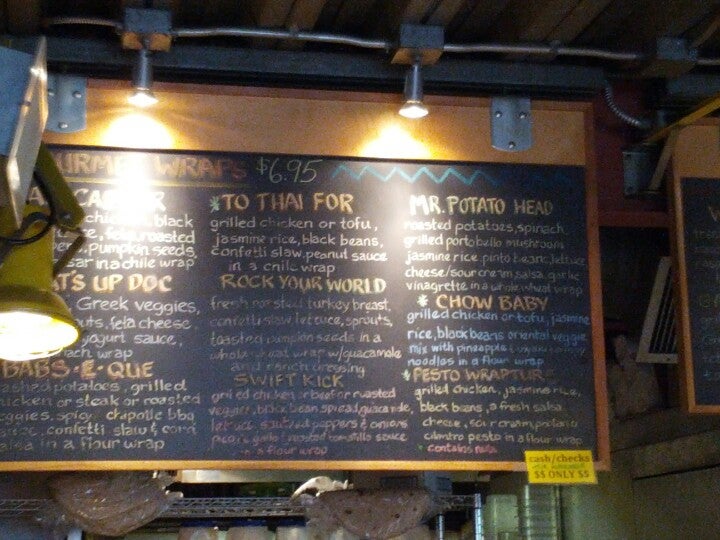 WRAPS $6.95
black
roasted
pumpkin seeds,
in a chile wrap
UP DOC
Greek veggies,
feta cheese
yogurt sauce,
wrap
BABS·E·QUE
mashed potatoes, grilled
chicken or steak or roasted
veggies, spicy chipotle bbq
confetti slaw & corn
salsa in a flour wrap
*TO THAI FOR
grilled chicken or tofu,
jasmine rice, black beans,
confetti slaw, peanut sauce
in a chile wrap
ROCK YOUR WORLD
fresh roasted turkey breast,
confetti slaw, lettuce, sprouts,
toasted pumpkin seeds in a
whole wheat wrap w/guacamole
and ranch dressing
SWIFT KICK
grilled chicken or beef or roasted
veggies, black bean spread, guacamole,
lettuce, sauteed peppers & onions
pico de gallo, roasted tomatillo sauce
in a flour wrap
MR. POTATO HEAD
roasted potatoes, spinach,
grilled portobello mushroom
jasmine rice, pinto beans, lettuce
cheese/sour cream, salsa, garlic
vinagrette in a whole wheat wrap
* CHOW BABY
grilled chicken or tofu, jasmine
rice, black beans, oriental veggie
mix with pineapple &
noodles in a flour wrap
*PESTO WRAPTURE
grilled chicken, jasmine rice,
black beans, a fresh salsa
cheese, sour cream, potato
cilantro pesto in a flour wrap
* contains nuts
cash/checks
$$ ONLY $$